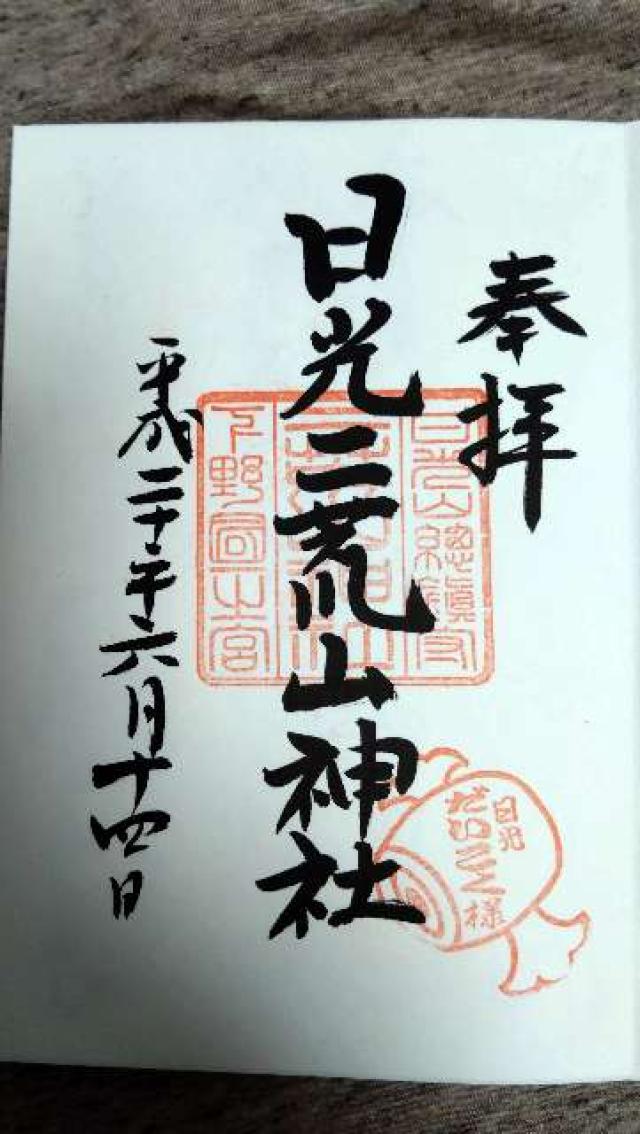 奉拝
日光二荒山神社
平成二十年六月十四日
日光山總鎮守
下野国一之宮
日光
だいこく様